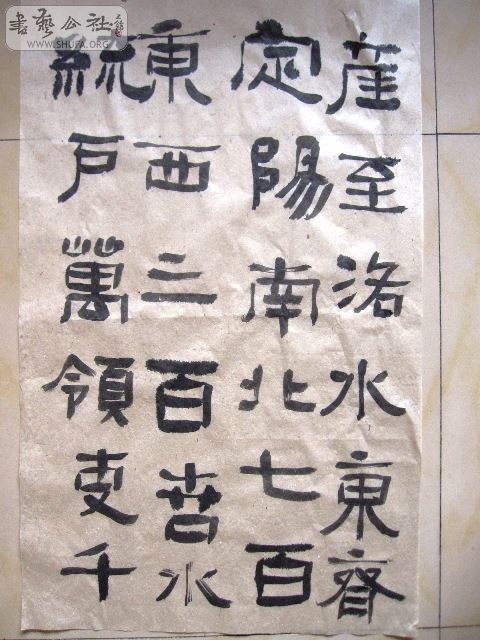 書藝公社
WWW.SHUFA.ORG
至洛水東齊
定陽南北七百
東西二百苦水
統戶萬領吏千